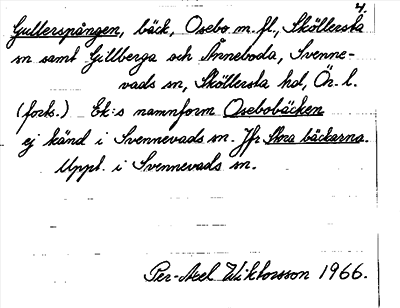 4.
Gullerspången, bäck, Osebo m. fl., Sköllersta
sn samt Gillberga och Ånneboda, Svenne-
vads sn, Sköllersta hd, Ör. l.
(forts.) Ek:s namnform Osebobäcken
ej känd i Svennevads sn. Jfr Stora bäckarna.
Uppt. i Svennevads sn.
Per-Axel Wiktorsson 1966.